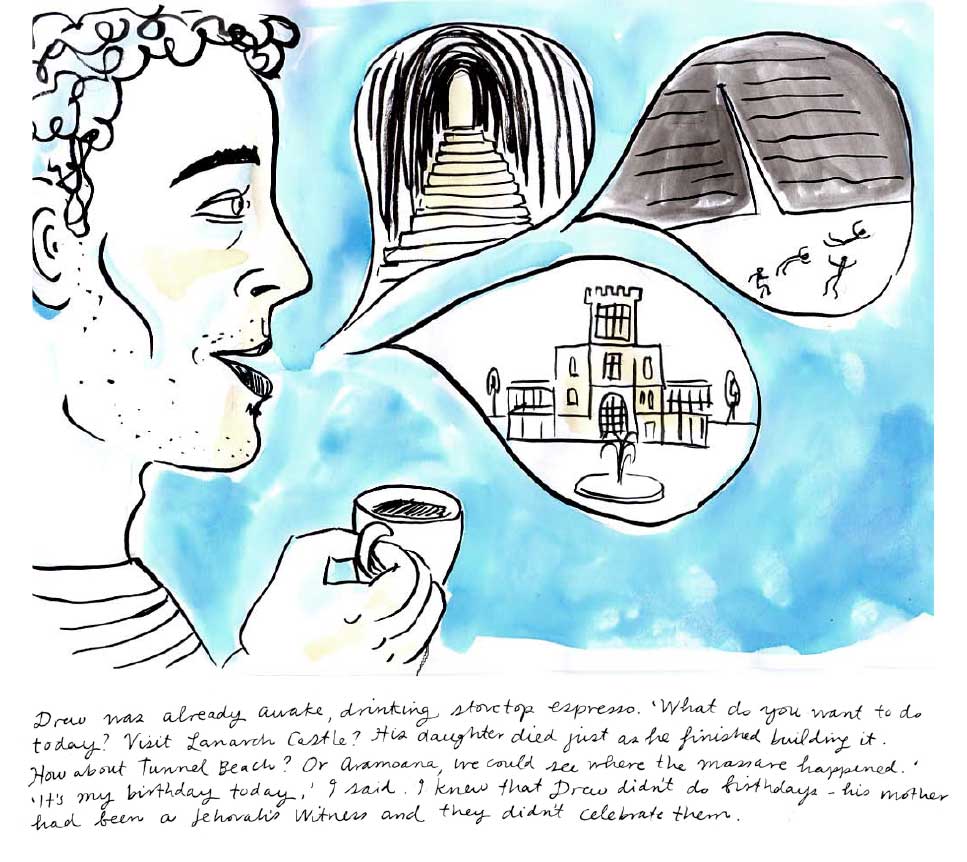 Drew was already awake, drinking stovetop espresso. 'What do you want to do
today? Visit Lanarch Castle? His daughter died just as he finished building it.
How about Tunnel Beach? Or Aramoana, we could see where the massare happened.'
'It's my birthday today,' I said. I knew that Drew didn't do birthdays - his mother
had been a Jehovah's Witness and they didn't celebrate them.